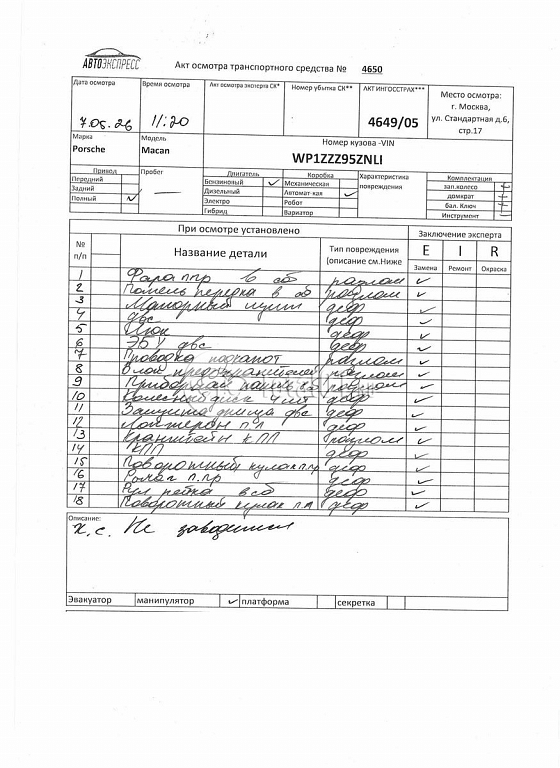 АВТОЭКСПРЕСС
Акт осмотра транспортного средства № 4650
Дата осмотра
7.05.26
Время осмотра
11:20
Акт осмотра эксперта СК*
Номер убытка СК**
АКТ ИНГОССТРАХ***
4649/05
Место осмотра:
г. Москва,
ул. Стандартная д.6,
стр.17
Марка
Porsche
Модель
Macan
Номер кузова -VIN
WP1ZZZ95ZNLI
Привод
Передний
Задний
Полный ✓
Пробег
—
Двигатель
Бензиновый ✓
Дизельный
Электро
Гибрид
Коробка
Механическая
Автомат-кая ✓
Робот
Вариатор
Характеристика
повреждения
Комплектация
зап.колесо +
домкрат +
бал. Ключ +
Инструмент +
При осмотре установлено
Заключение эксперта
№
п/п
Название детали
Тип повреждения
(описание см.Ниже
E I R
Замена Ремонт Окраска
1 Фара ппр в сб разлом ✓
2 Панель передка в сб разлом ✓
3 Моторный щит деф ✓
4 ДВС деф ✓
5 деф ✓
6 ЭБУ двс деф ✓
7 Проводка подкапот разлом ✓
8 Блок предохранителей разлом ✓
9 Приборная панель сб разлом ✓
10 Колесный диск 4 шт деф ✓
11 Защита днища двс деф ✓
12 Лонжерон п.л деф ✓
13 Кранштейн КПП разлом ✓
14 КПП деф ✓
15 Поворотный кулак ппр деф ✓
16 Рычаг п.пр деф ✓
17 Рул рейка в сб деф ✓
18 Поворотный кулак пл деф ✓
Описание:
К.С. Не заводится
Эвакуатор манипулятор ✓ платформа секретка